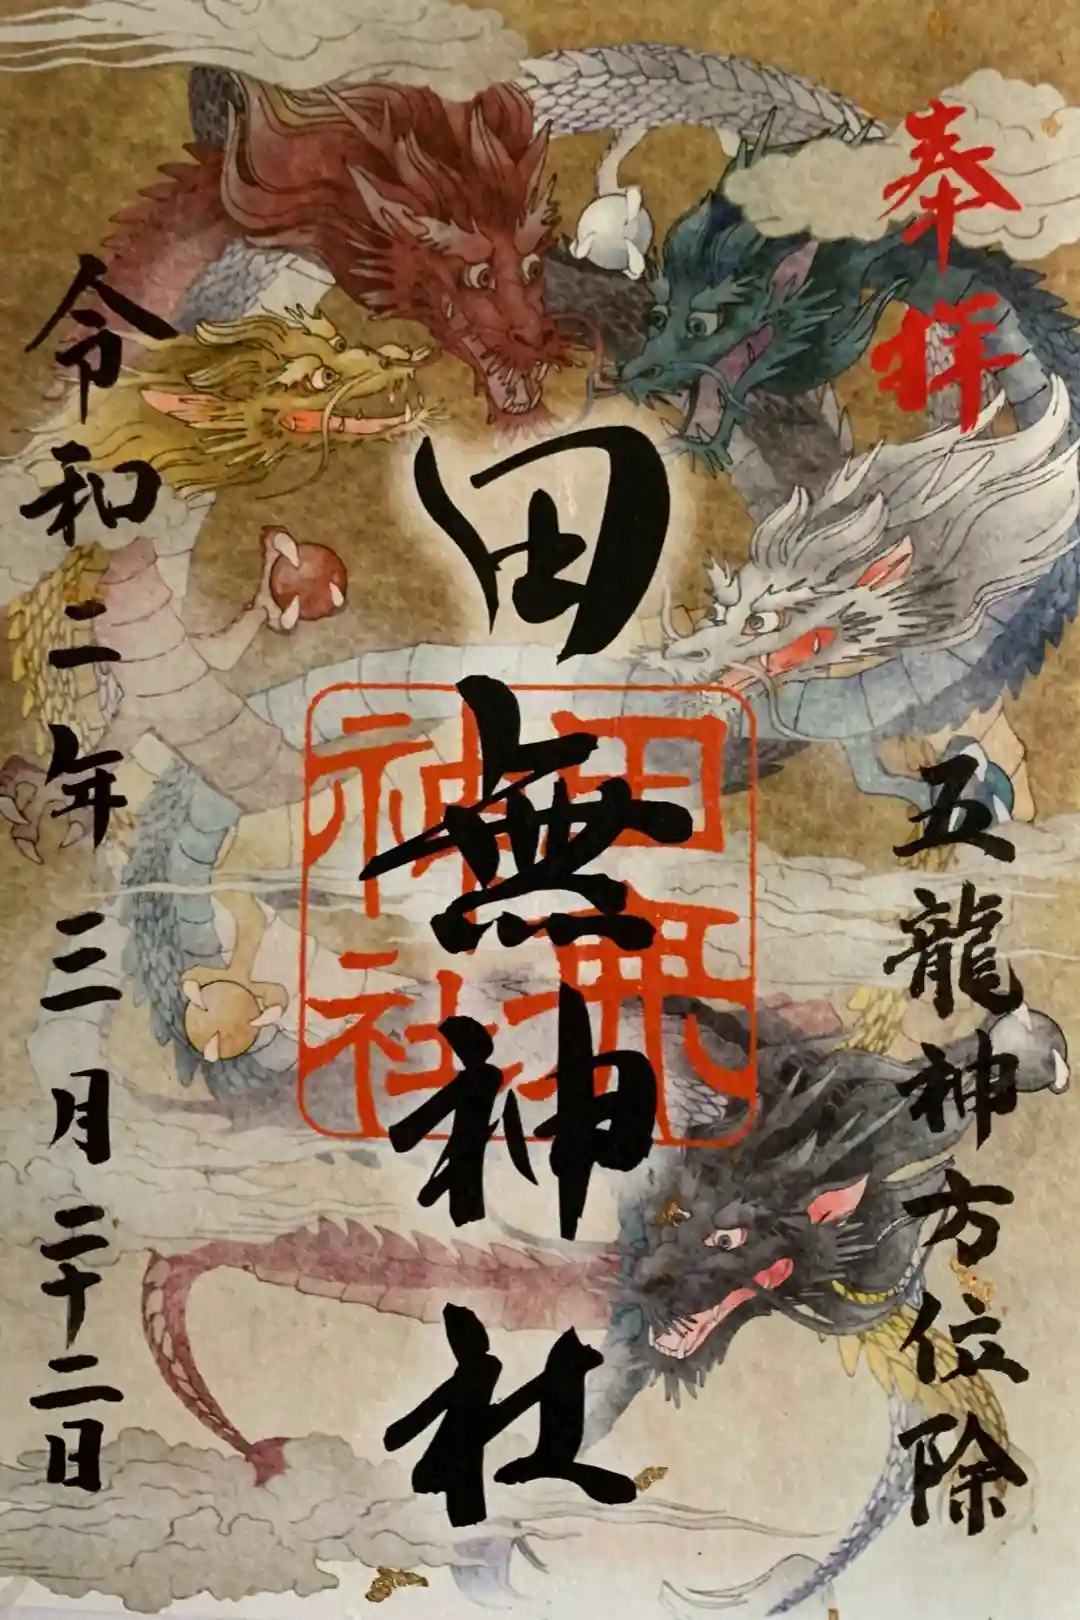 奉拝
五龍神方位除
田無神社
田無神社
令和二年三月二十二日